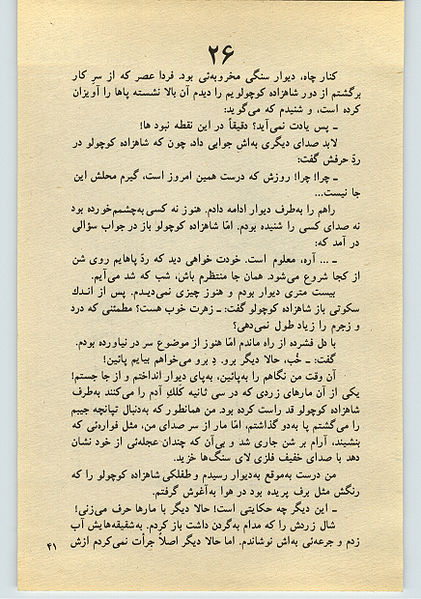 ۲۶
کنار چاه، دیوار سنگی مخروبه‌ئی بود. فردا عصر که از سرِ کار
برگشتم از دور شاهزاده کوچولویم را دیدم آن بالا نشسته پاها را آویزان
کرده است، و شنیدم که می‌گوید:
ـ پس یادت نمی‌آید؟ دقیقاً در این نقطه نبود ها!
لابد صدای دیگری به‌اش جوابی داد، چون که شاهزاده کوچولو در
ردّ حرفش گفت:
ـ چرا! چرا! روزش که درست همین امروز است، گیرم محلش این
جا نیست...
راهم را به‌طرف دیوار ادامه دادم. هنوز نه کسی به‌چشمم‌خورده بود
نه صدای کسی را شنیده بودم. امّا شاهزاده کوچولو باز در جواب سؤالی
در آمد که:
ـ ... آره، معلوم است. خودت خواهی دید که ردّ پاهایم روی شن
از کجا شروع می‌شود. همان جا منتظرم باش، شب که شد می‌آیم.
بیست متری دیوار بودم و هنوز چیزی نمی‌دیدم. پس از اندك
سکوتی باز شاهزاده کوچولو گفت: ـ زهرت خوب هست؟ مطمئنی که درد
و زجرم را زیاد طول نمی‌دهی؟
با دل فشرده از راه ماندم امّا هنوز از موضوع سر در نیاورده بودم.
گفت: ـ خُب، حالا دیگر برو. دِ برو می‌خواهم بیایم پائین!
آن وقت من نگاهم را به‌پائین، به‌پای دیوار انداختم و از جا جستم!
یکی از آن مارهای زردی که در سی ثانیه کلكِ آدم را می‌کنند به‌طرف
شاهزاده کوچولو قد راست کرده بود. من همانطور که به‌دنبال تپانچه جیبم
را می‌گشتم پا به‌دو گذاشتم، امّا مار از سر صدای من، مثل فواره‌ئی که
بنشیند، آرام بر شن جاری شد و بی‌آن که چندان عجله‌ئی از خود نشان
دهد با صدای خفیف فلزی لای سنگ‌ها خزید.
من درست به‌موقع به‌دیوار رسیدم و طفلکی شاهزاده کوچولو را که
رنگش مثل برف پریده بود در هوا به‌آغوش گرفتم.
ـ این دیگر چه حکایتی است! حالا دیگر با مارها حرف می‌زنی!
شال زردش را که مدام به‌گردن داشت باز کردم. به‌شقیقه‌هایش آب
زدم و جرعه‌ئی به‌اش نوشاندم. اما حالا دیگر اصلاً جرأت نمی‌کردم ازش
۴۱